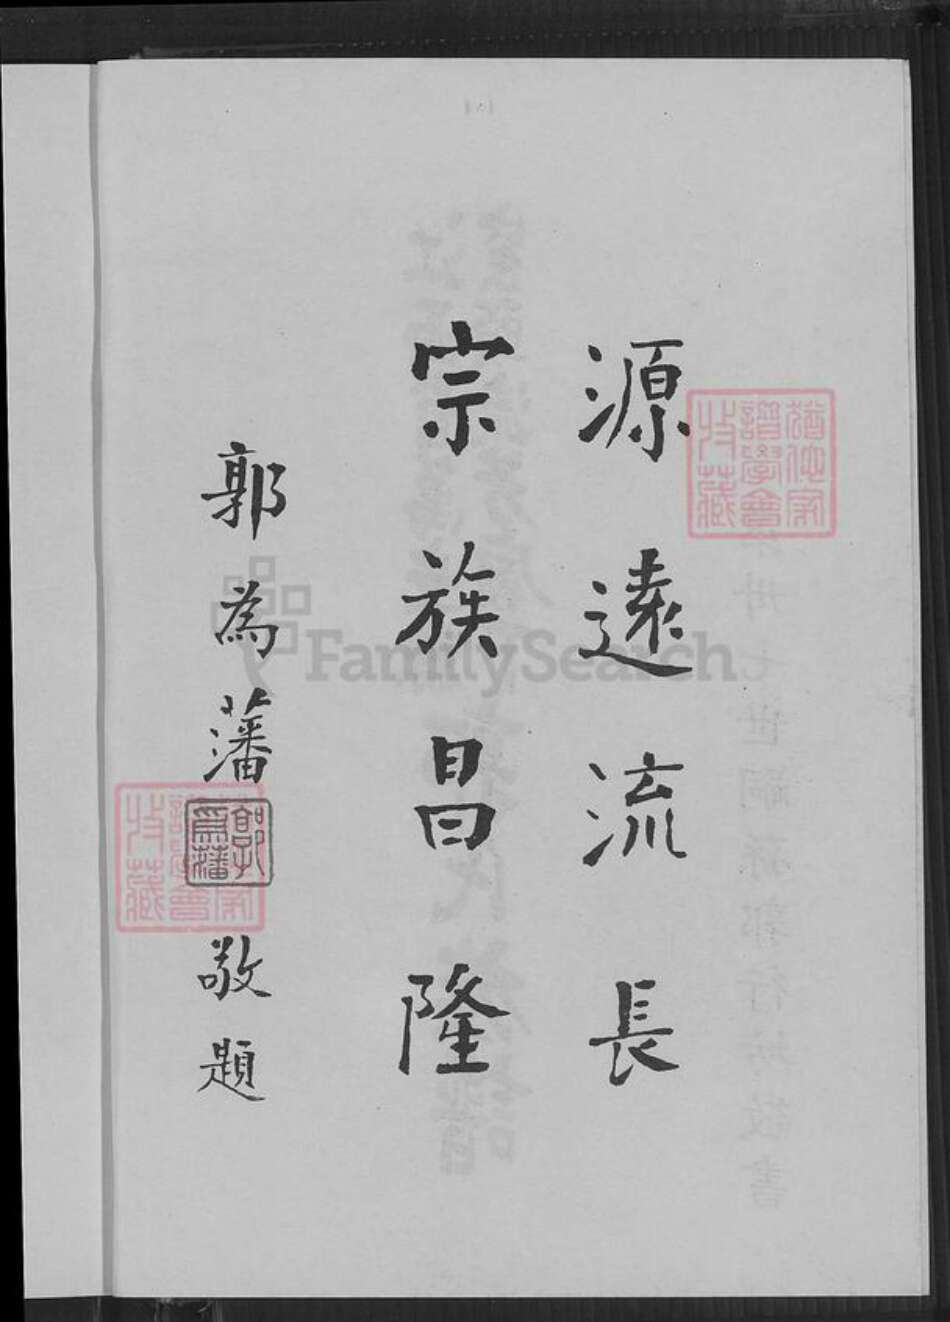 源遠流長
宗族昌隆
郭為藩敬題
郭為藩
猶他家譜學會收藏
譜學會家收藏
FamilySearch